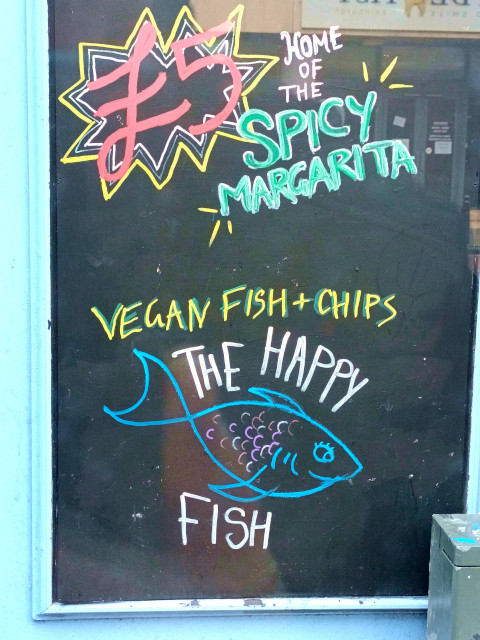 £5
HOME
OF
THE
SPICY
MARGARITA
VEGAN FISH + CHIPS
THE HAPPY
FISH